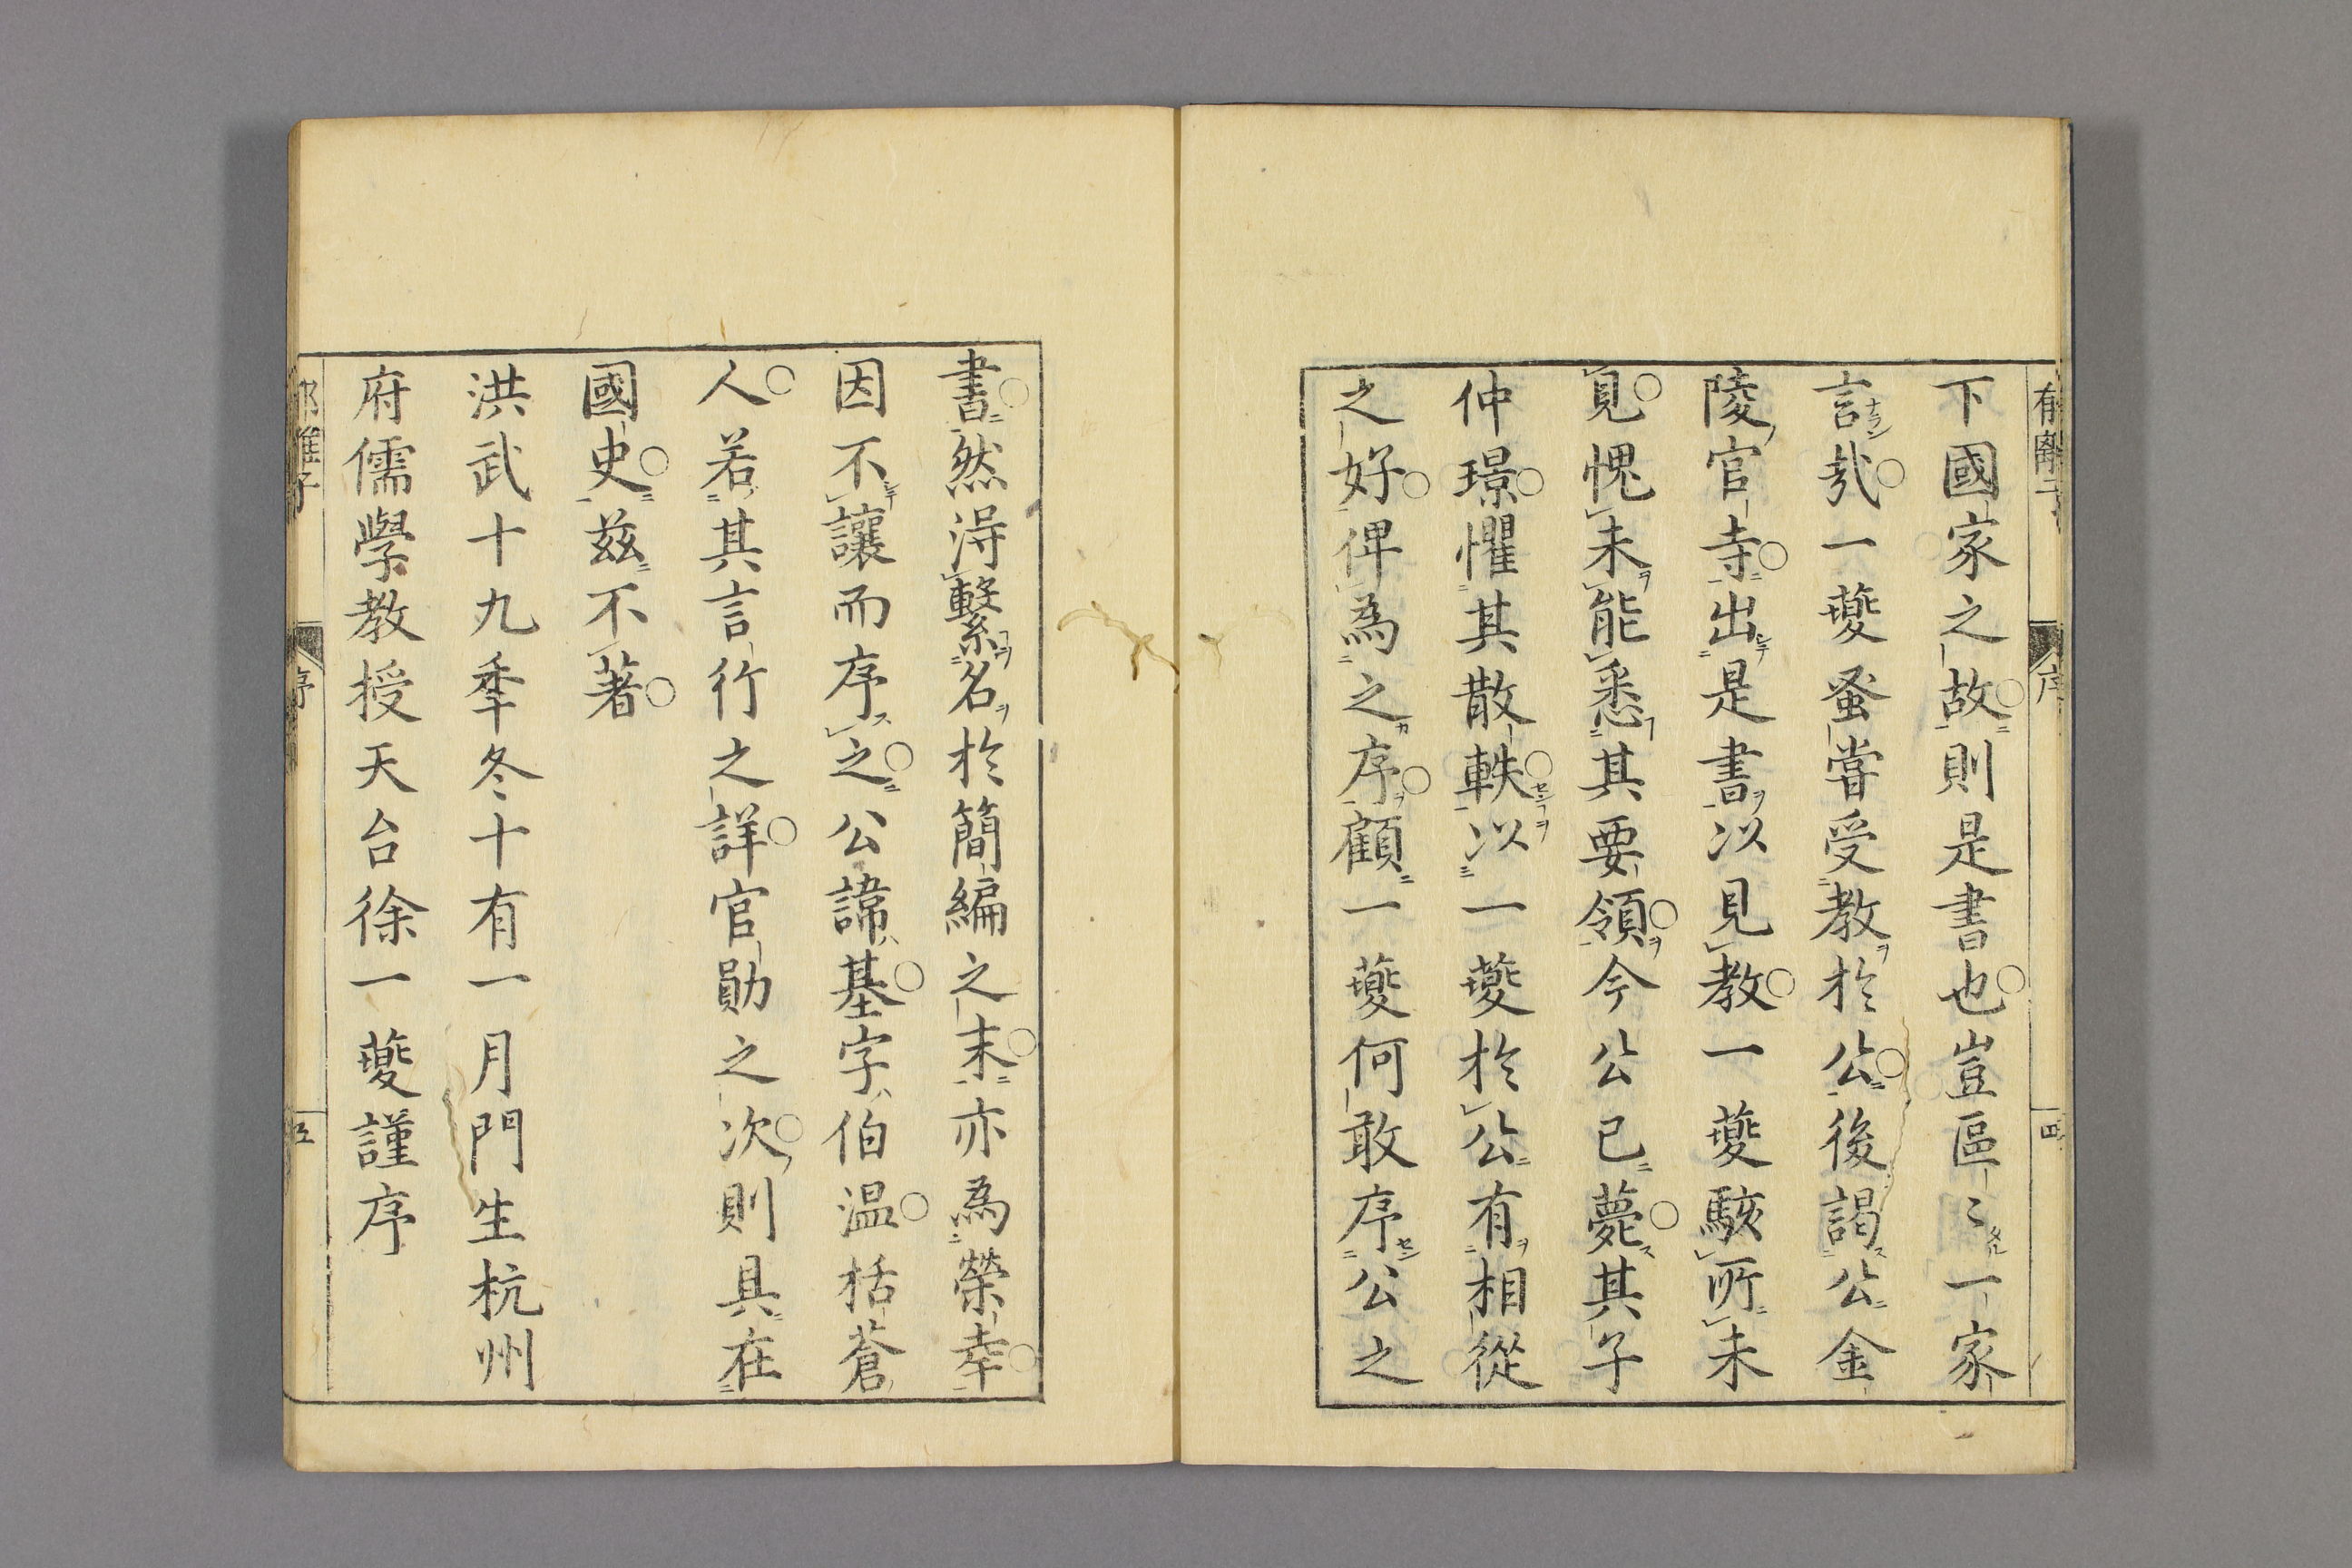 下國家之故則是書也豈區〻一家
言㢤一夔蚤嘗受教於公後謁公金
陵官寺出是書以見教一夔駭所未
見愧未能悉其要領今公已薨其子
仲璟懼其散軼以一夔於公有相從
之好俾為之序顧一夔何敢序公之
書然淂繫名於簡編之末亦為榮幸
因不讓而序之公諱基字伯温括蒼
人若其言行之詳官勛之次則具在
國史茲不著
洪武十九秊冬十有一月門生杭州
府儒學教授天台徐一夔謹序
序
四
郁離子
序
五